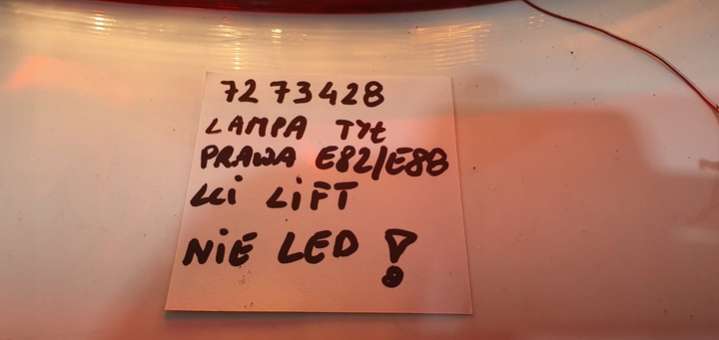 7273428
LAMPA TYŁ
PRAWA E82/E88
LCi LiFT
NiE LED !